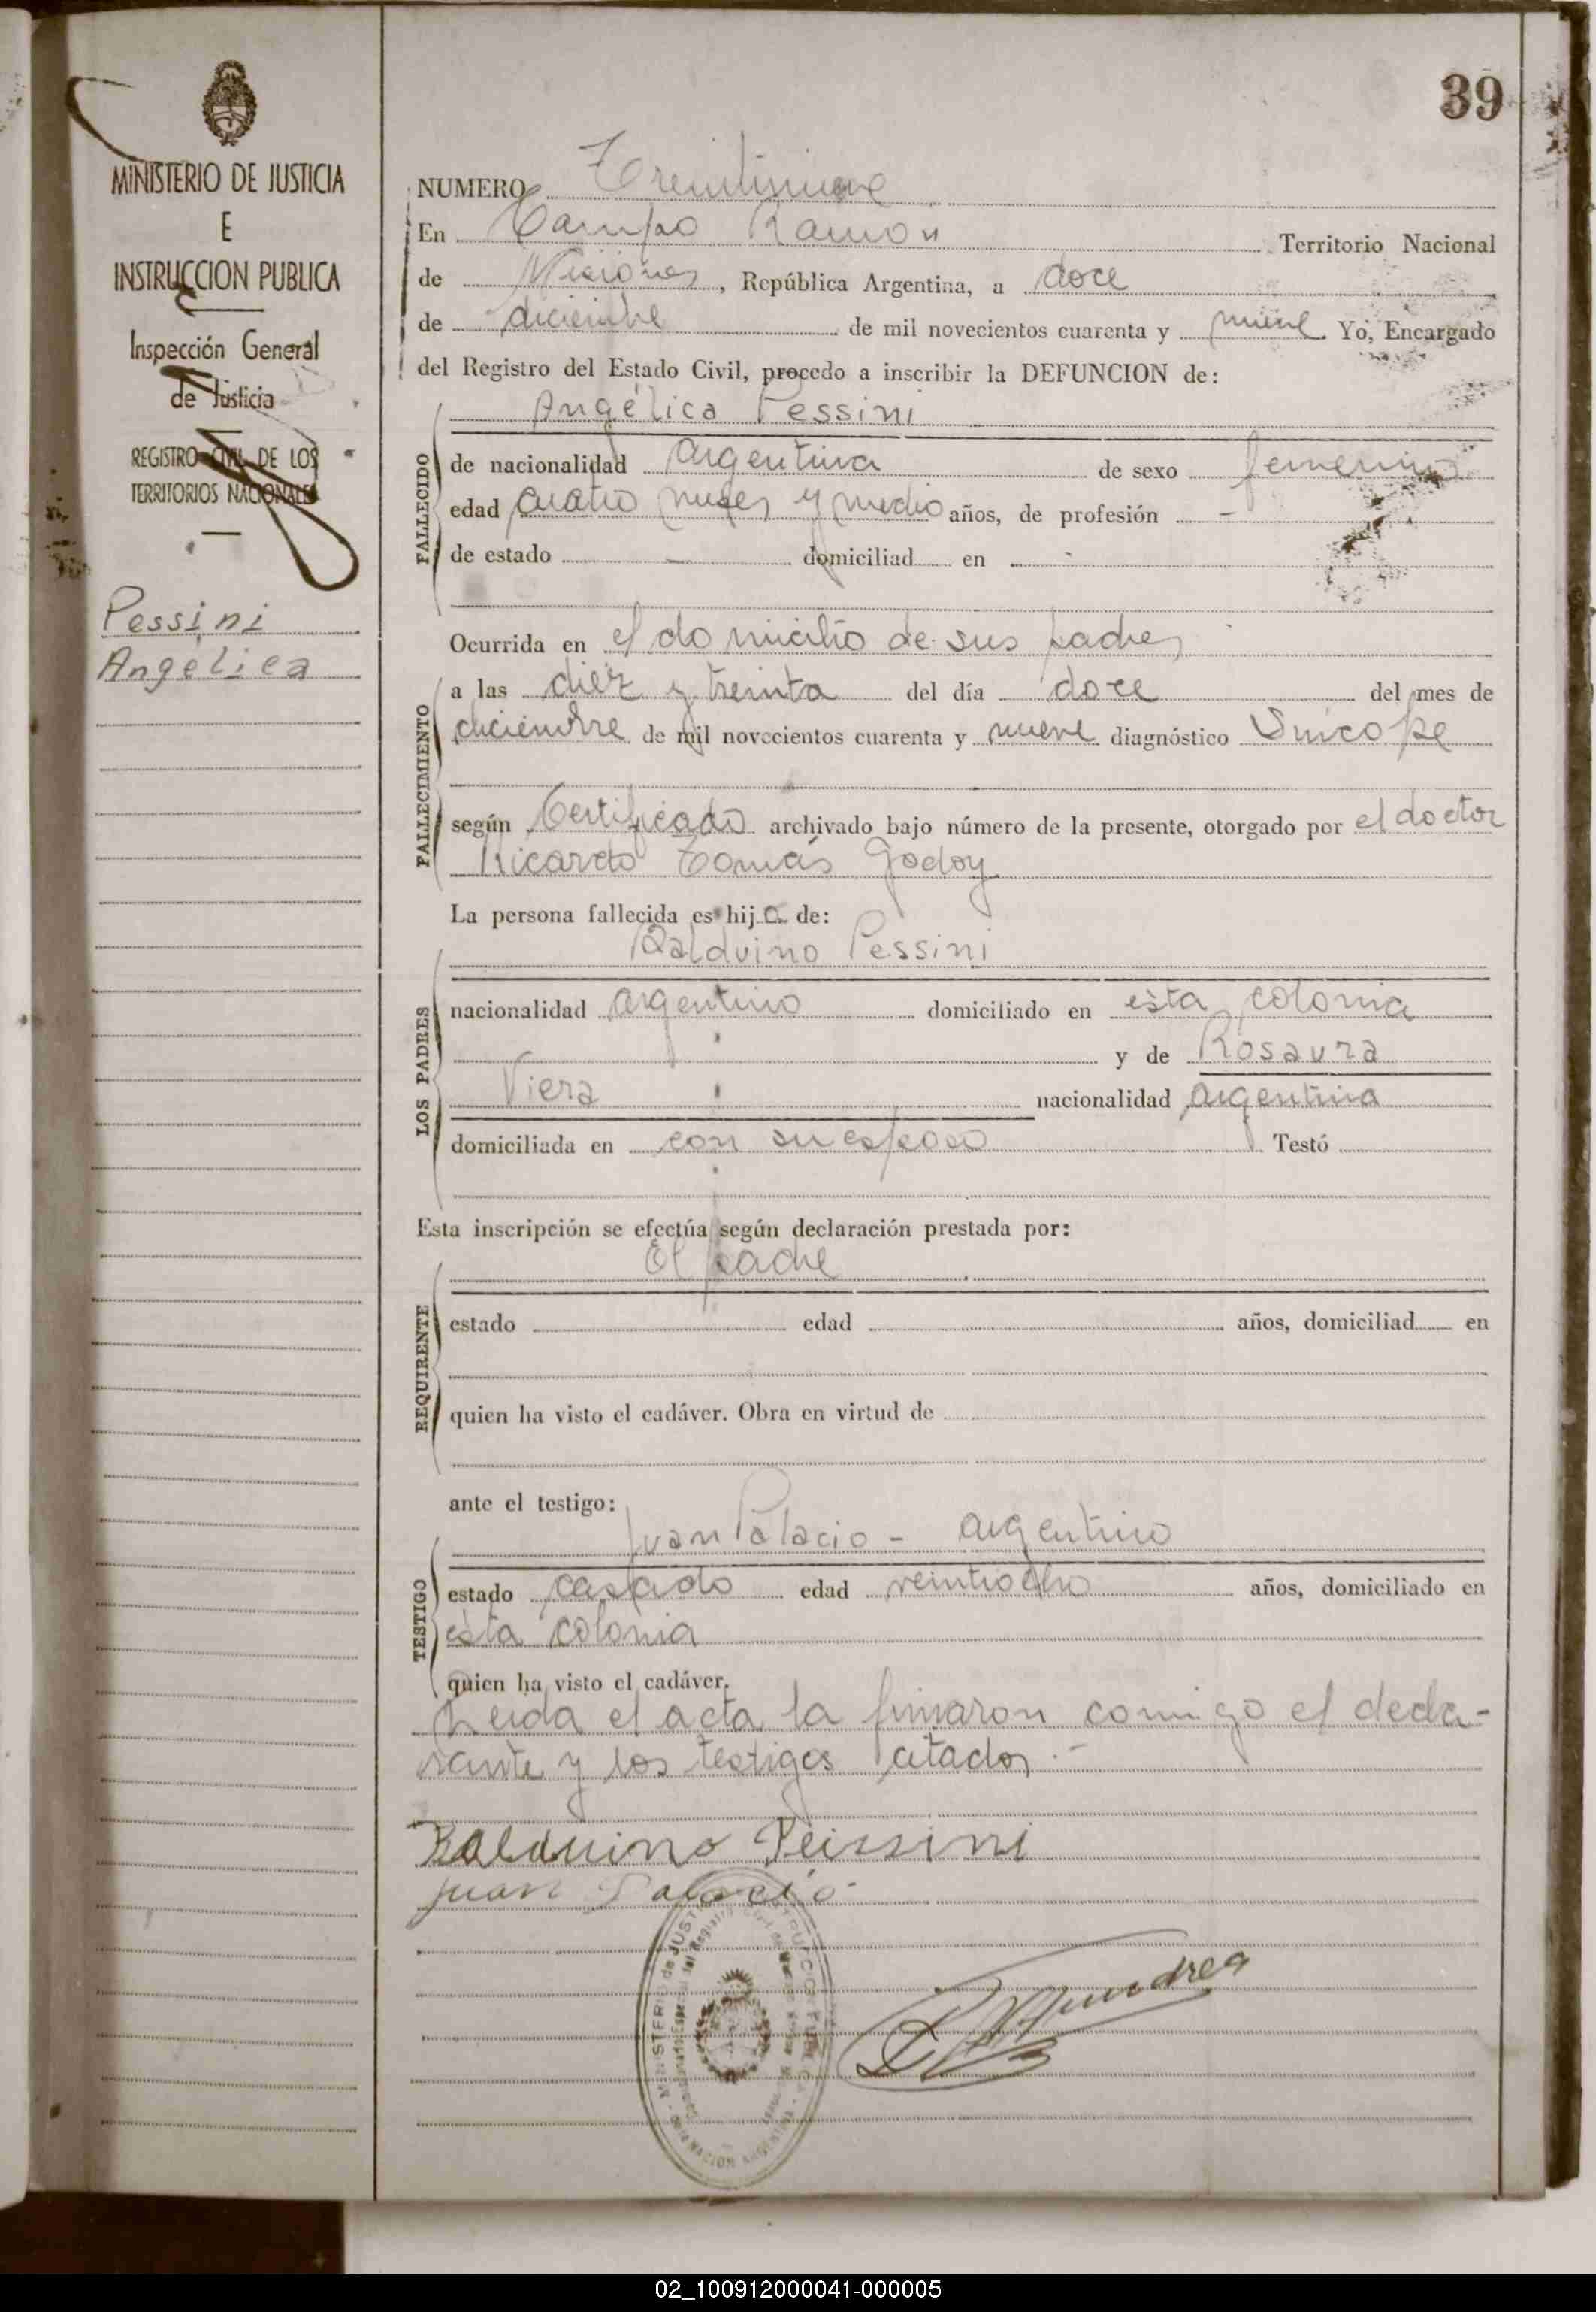 39
MINISTERIO DE JUSTICIA
E
INSTRUCCION PUBLICA
Inspección General
de Justicia
REGISTRO CIVIL DE LOS
TERRITORIOS NACIONALES
Pessini
Angélica
NUMERO Treintinueve
En Campo Ramón Territorio Nacional
de Misiones, República Argentina, a doce
de diciembre de mil novecientos cuarenta y nueve Yo, Encargado
del Registro del Estado Civil, procedo a inscribir la DEFUNCION de:
Angélica Pessini
FALLECIDO
de nacionalidad argentina de sexo femenino
edad cuatro meses y medio años, de profesión -
de estado - domiciliad en -
Ocurrida en el domicilio de sus padres
FALLECIMIENTO
a las diez y treinta del día doce del mes de
diciembre de mil novecientos cuarenta y nueve diagnóstico Sincope
según Certificado archivado bajo número de la presente, otorgado por el doctor
Ricardo Tomás Godoy
La persona fallecida es hija de:
LOS PADRES
Balduino Pessini
nacionalidad argentino domiciliado en ésta colonia
y de Rosaura
Viera nacionalidad argentina
domiciliada en con su esposo Testó
Esta inscripción se efectúa según declaración prestada por:
REQUIRENTE
El padre
estado edad años, domiciliad en
quien ha visto el cadáver. Obra en virtud de
ante el testigo:
TESTIGO
Juan Palacio - argentino
estado casado edad veintiocho años, domiciliado en
ésta colonia
quien ha visto el cadáver.
Leida el acta la firmaron comigo el decla-
rante y los testigos citados.-
Balduino Peissini
Juan Palacio
02_100912000041-000005